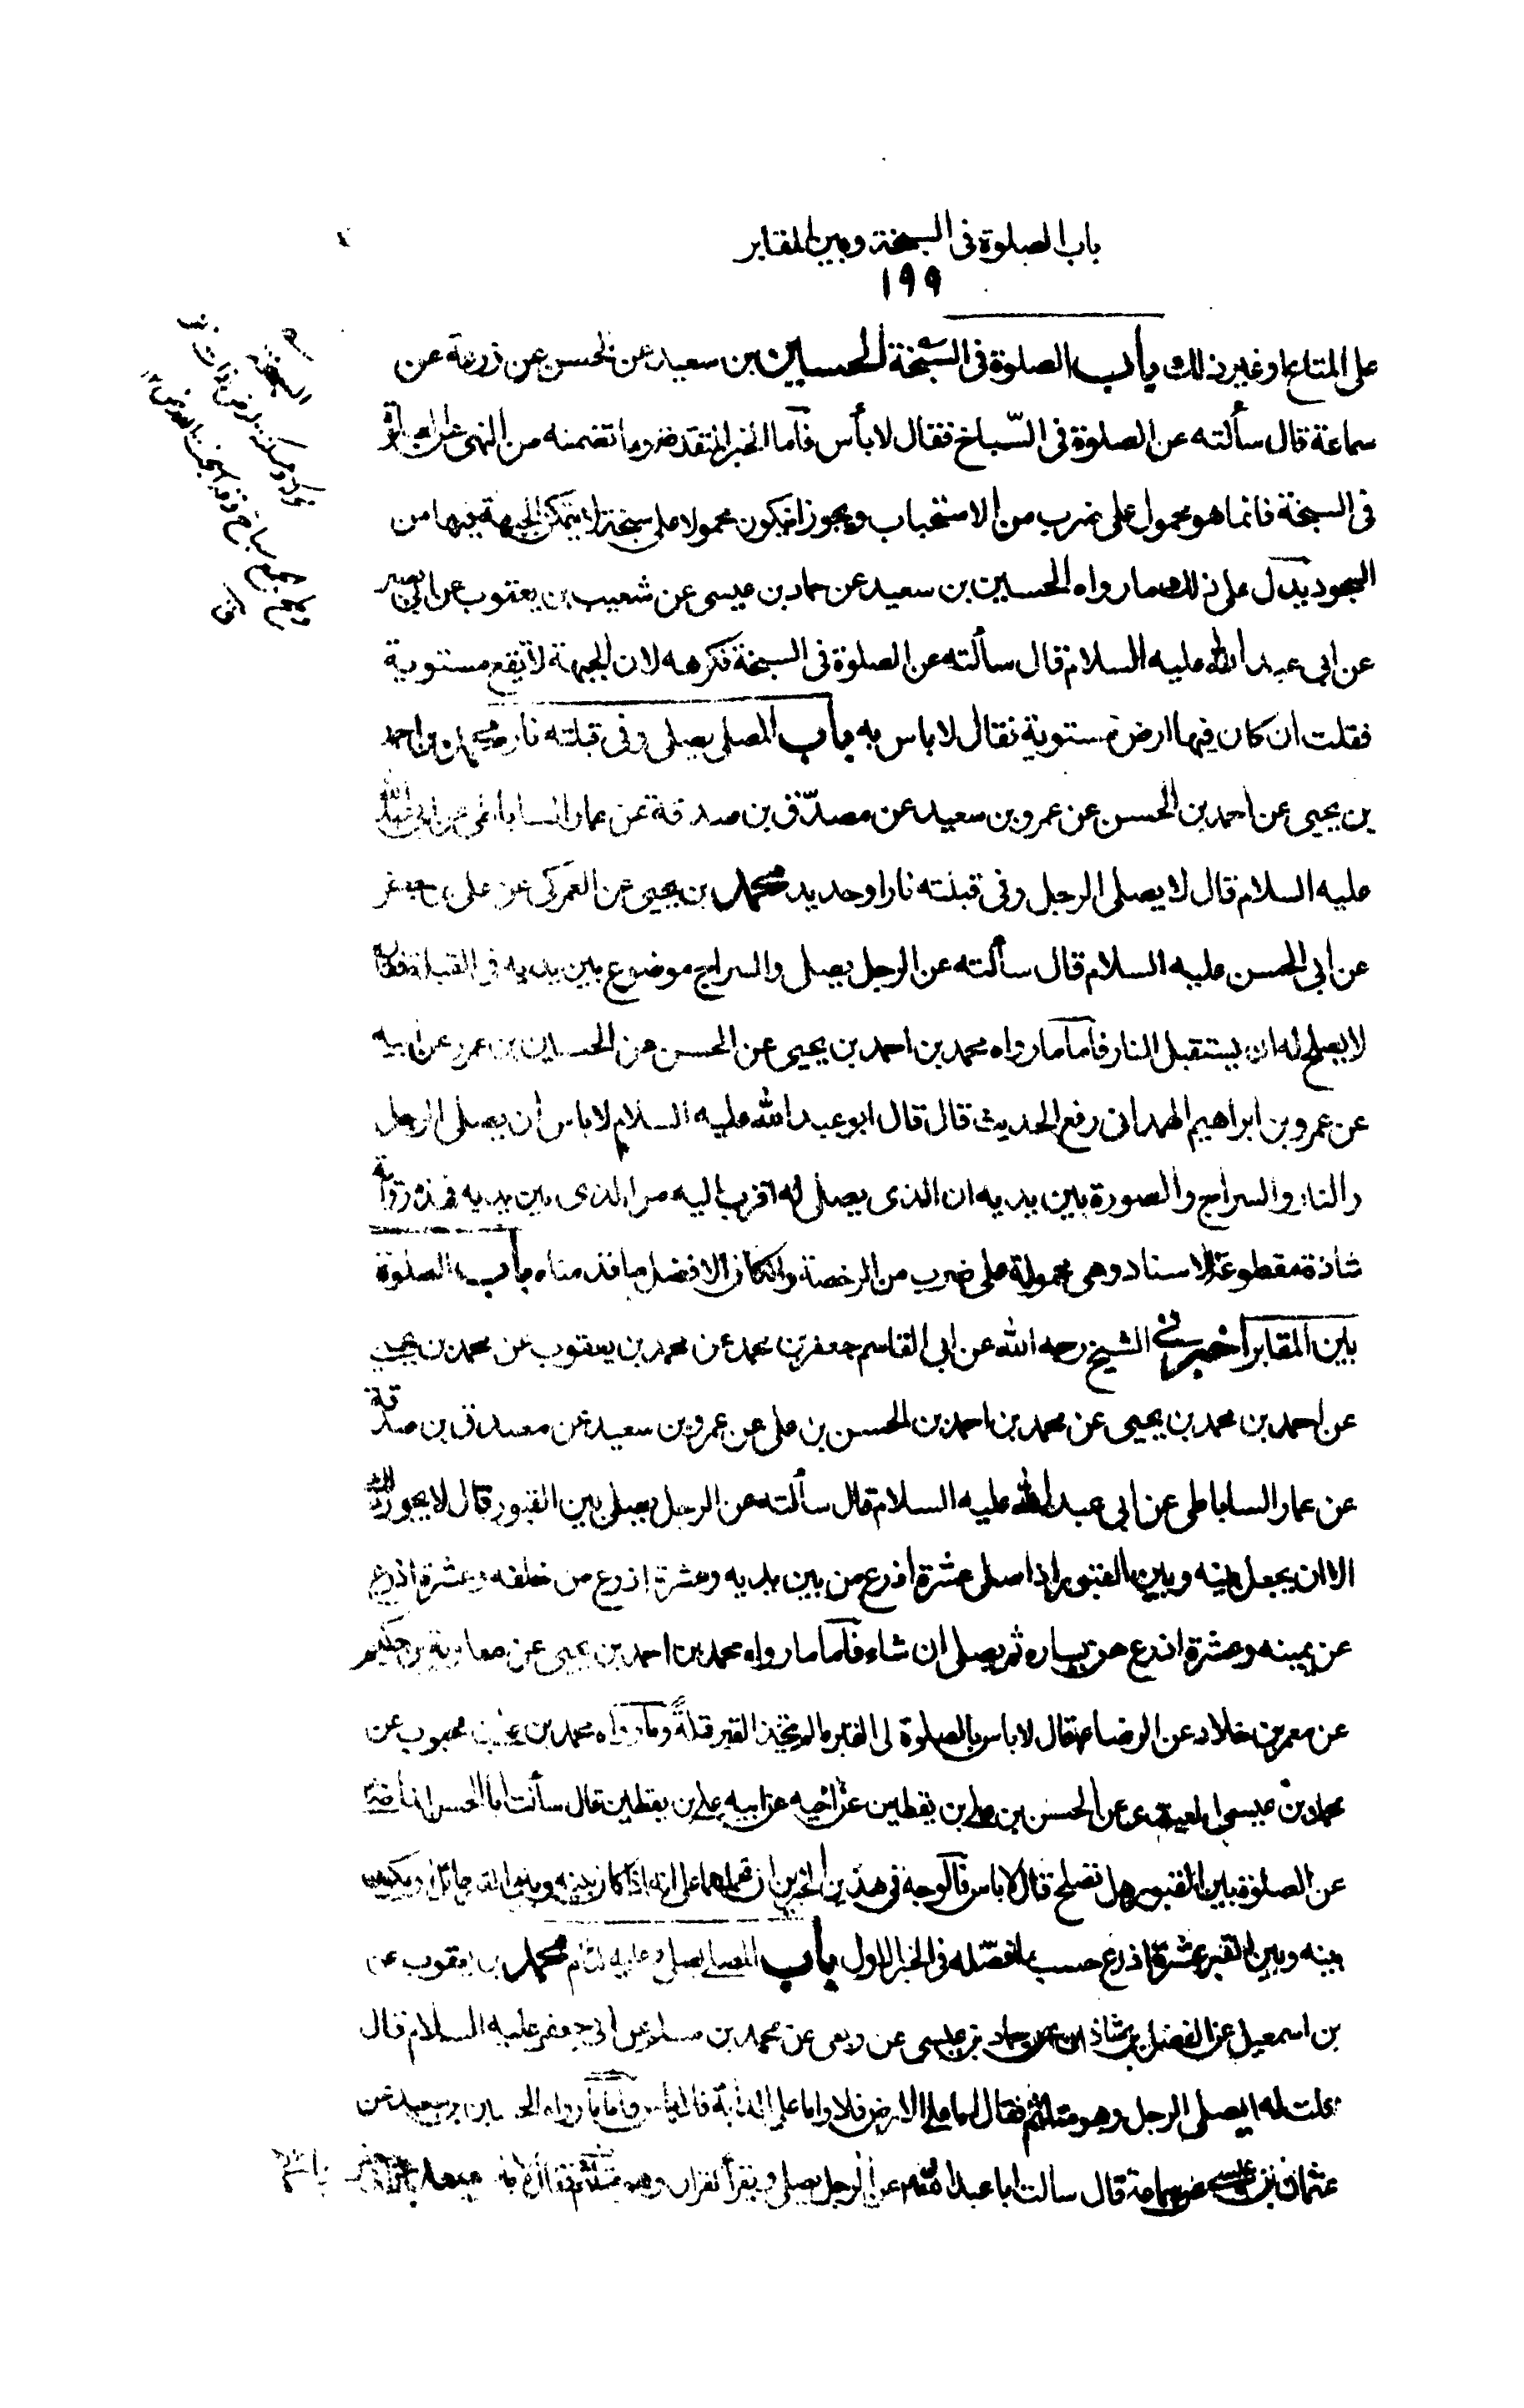 باب الصلوة فى السبخة وبين المقابر
١٩٩
على المتاع اوغير ذلك باب الصلوة فى السبخة الحسين بن سعيد عن الحسن عن زرعة عن
سماعة قال سألته عن الصلوة فى السّباخ فقال لا بأس فأما الخبر المتقدم وما تضمنه من النهى عن الصلوة
فى السبخة فانما هو محمول على ضرب من الاستحباب ويجوز ان يكون محمولا على سبخة لا يتمكن الجبهة فيها من
السجود يدل على ذلك ما رواه الحسين بن سعيد عن حماد بن عيسى عن شعيب بن يعقوب عن ابى بصير
عن ابى عبد الله عليه السلام قال سألته عن الصلوة فى السبخة فكرهه لان الجبهة لا تقع مستوية
فقلت ان كان فيها ارض مستوية فقال لا باس به باب المصلى يصلى وفى قبلته نار محمد بن احمد
بن يحيى عن احمد بن الحسن عن عمرو بن سعيد عن مصدّق بن صدقة عن عمار الساباطى عن ابى عبد الله
عليه السلام قال لا يصلى الرجل وفى قبلته نار او حديد محمد بن يحيى عن العمركى عن على بن جعفر
عن ابى الحسن عليه السلام قال سألته عن الرجل يصلى والسراج موضوع بين يديه فى القبلة فقال
لا يصلح له ان يستقبل النار فأما ما رواه محمد بن احمد بن يحيى عن الحسن عن الحسين بن عمرو عن ابيه
عن عمرو بن ابراهيم الهمدانى رفع الحديث قال قال ابو عبد الله عليه السلام لا باس ان يصلى الرجل
والنار والسراج والصورة بين يديه ان الذى يصلى له اقرب اليه من الذى بين يديه فهذه رواية
شاذة مقطوعة الاسناد وهى محمولة على ضرب من الرخصة وان كان الافضل ما قدمناه باب الصلوة
بين المقابر اخبرنى الشيخ رحمه الله عن ابى القاسم جعفر بن محمد عن محمد بن يعقوب عن محمد بن يحيى
عن احمد بن محمد بن يحيى عن محمد بن احمد بن الحسن بن على عن عمرو بن سعيد عن مصدق بن صدقة
عن عمار الساباطى عن ابى عبد الله عليه السلام قال سألته عن الرجل يصلى بين القبور قال لا يجوز ذلك
الا ان يجعل بينه وبين القبور اذا صلى عشرة اذرع من بين يديه وعشرة اذرع من خلفه وعشرة اذرع
عن يمينه وعشرة اذرع عن يساره ثم يصلى ان شاء فأما ما رواه محمد بن احمد بن يحيى عن معاوية بن حكيم
عن معمر بن خلاد عن الرضا قال لا باس بالصلوة الى القبر ما لم يتخذ القبر قبلةً وما رواه محمد بن على بن محبوب عن
محمد بن عيسى العبيدى عن الحسن بن على بن يقطين عن اخيه عن ابيه على بن يقطين قال سألت ابا الحسن الماضى
عن الصلوة بين القبور هل تصلح قال لا باس فالوجه فى هذين الخبرين ان نحملهما على انه اذا كان بينه وبين القبر حائل او يكون
بينه وبين القبر عشرة اذرع حسب ما فصّله فى الخبر الاول باب المصلى يصلى وعليه لثام محمد بن يعقوب عن
بن اسمعيل عن الفضل بن شاذان عن حماد بن عيسى عن ربعى عن محمد بن مسلم عن ابى جعفر عليه السلام قال
قلت له ايصلى الرجل وهو متلثم فقال اما على الارض فلا واما على الدابة فلا باس فأما ما رواه الحسين بن سعيد عن
عثمان بن عيسى عن سماعة قال سالت ابا عبد الله عن الرجل يصلى ويقرأ القران وهو متلثم فقال لا باس